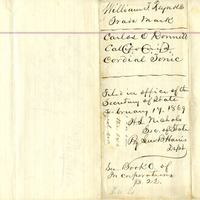 William T. Reynolds
Trade Mark
Carlos C Bonnell
Cordial Tonic
Filed in office of the
Secretary of State
February 19, 1869
H L Nichols
Sec. of State
Dept.
See Book C. of
Incorporations
p. 22.